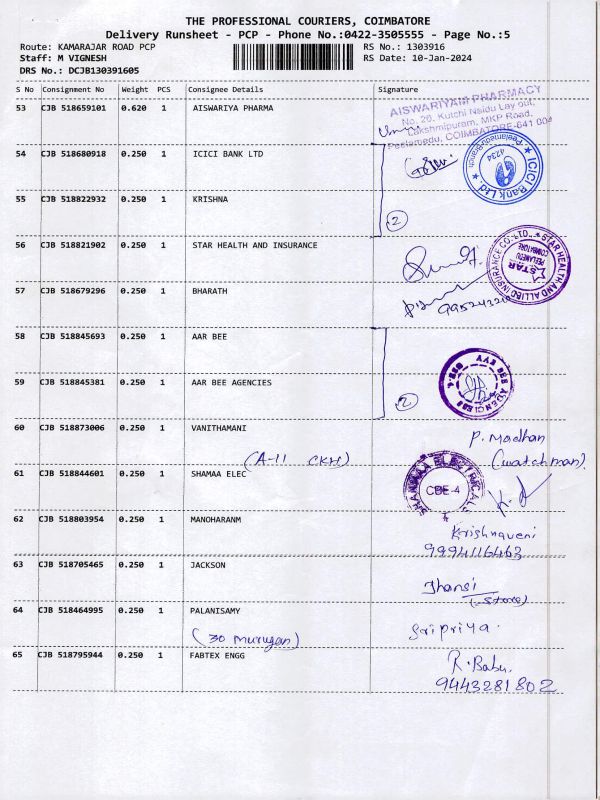 THE PROFESSIONAL COURIERS, COIMBATORE
Delivery Runsheet - PCP - Phone No.:0422-3505555 - Page No.:5
Route: KAMARAJAR ROAD PCP RS No.: 1303916
Staff: M VIGNESH RS Date: 10-Jan-2024
DRS No.: DCJB130391605
S No Consignment No Weight PCS Consignee Details Signature
53 CJB 518659101 0.620 1 AISWARIYA PHARMA
AISWARIYAM PHARMACY
No. 20, Kutchi Naidu Lay out,
Lakshmipuram, MKP Road,
Peelamedu, COIMBATORE-641 004
54 CJB 518680918 0.250 1 ICICI BANK LTD
ICICI Bank Ltd.
4234
55 CJB 518822932 0.250 1 KRISHNA
2
56 CJB 518821902 0.250 1 STAR HEALTH AND INSURANCE
STAR HEALTH AND ALLIED INSURANCE CO. LTD.,
STAR
PEELAMEDU
COIMBATORE
57 CJB 518679296 0.250 1 BHARATH
58 CJB 518845693 0.250 1 AAR BEE
59 CJB 518845381 0.250 1 AAR BEE AGENCIES
2
60 CJB 518873006 0.250 1 VANITHAMANI
P. Madhan
(A-11 CKH) (watchman)
61 CJB 518844601 0.250 1 SHAMAA ELEC
SHAMAA ELECTRICALS
CBE-4
62 CJB 518803954 0.250 1 MANOHARANM
Krishnaveni
9994116463
63 CJB 518705465 0.250 1 JACKSON
Jhansi
(store)
64 CJB 518464995 0.250 1 PALANISAMY
(30 Murugan) Sripriya.
65 CJB 518795944 0.250 1 FABTEX ENGG
R. Babu.
9443281802